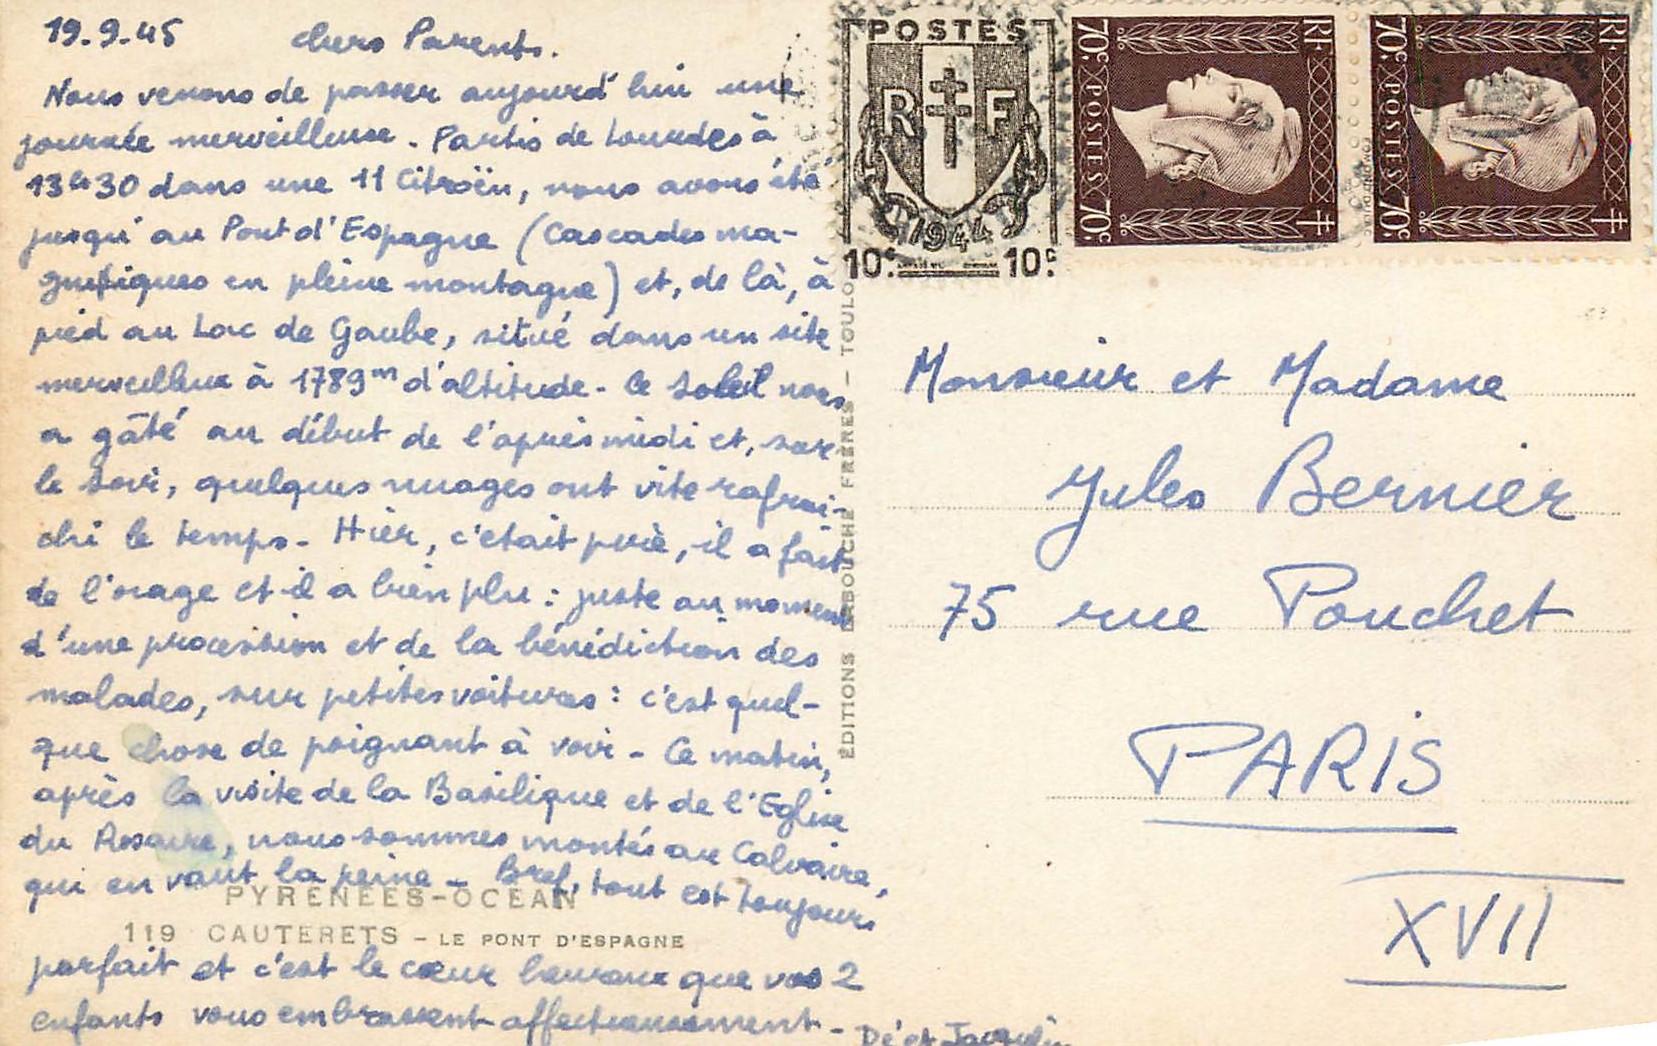 19.9.45 chers Parents.
Nous venons de passer aujourd'hui une
journée merveilleuse. Partis de Lourdes à
13h30 dans une 11 Citroën, nous avons été
jusqu'au Pont d'Espagne (Cascades ma-
gnifiques en pleine montagne) et, de là, à
pied au Lac de Gaube, situé dans un site
merveilleux à 1789m d'altitude - le soleil nous
a gâté au début de l'après midi et, sur
le soir, quelques nuages ont vite rafraî-
chi le temps - Hier, c'était pire, il a fait
de l'orage et il a bien plu : juste au moment
d'une procession et de la bénédiction des
malades, sur petites voitures : c'est quel-
que chose de poignant à voir - Ce matin,
après la visite de la Basilique et de l'Eglise
du Rosaire, nous sommes montés au Calvaire,
qui en vaut la peine - Bref, tout est toujours
parfait et c'est le cœur heureux que vos 2
enfants vous embrassent affectueusement -
Dé et
PYRÉNÉES-OCÉAN
119 CAUTERETS - LE PONT D'ESPAGNE
ÉDITIONS LABOUCHE FRÈRES - TOULO
POSTES
RF
1944
10c 10c
RF
70c POSTES 70c
RF
70c POSTES 70c
Monsieur et Madame
Jules Bernier
75 rue Pouchet
PARIS
XVII